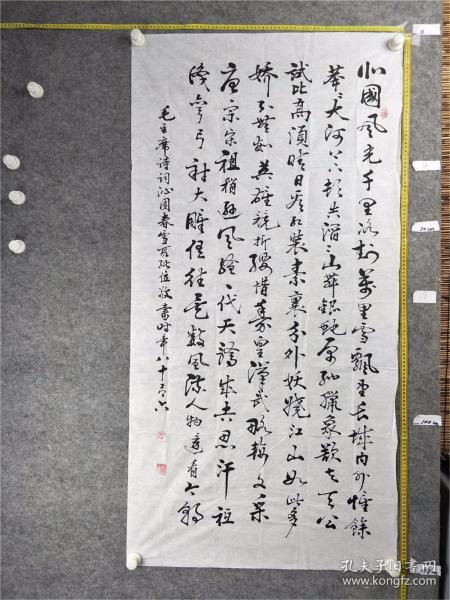 北國风光千里冰封萬里雪飘望长城内外惟餘
莽莽大河上下顿失滔滔山舞银蛇原驰蜡象欲与天公
试比高须晴日看红装素裹分外妖娆江山如此多
娇引無数英雄竞折腰惜秦皇漢武略输文采
唐宗宋祖稍逊风骚一代天骄成吉思汗祗
识弯弓射大雕俱往矣数风流人物还看今朝
毛主席诗词沁园春雪 书时年八十六
孔夫子旧书网
www.kongfz.com